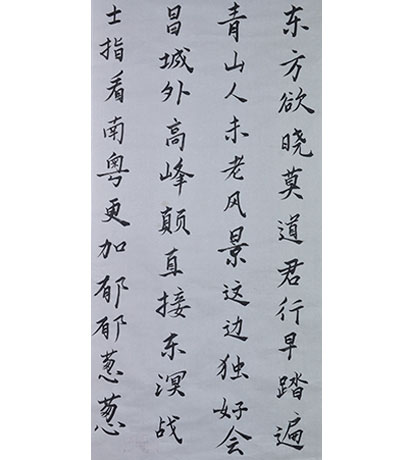 东方欲晓莫道君行早踏遍
青山人未老风景这边独好会
昌城外高峰颠直接东溟战
士指看南粤更加郁郁葱葱